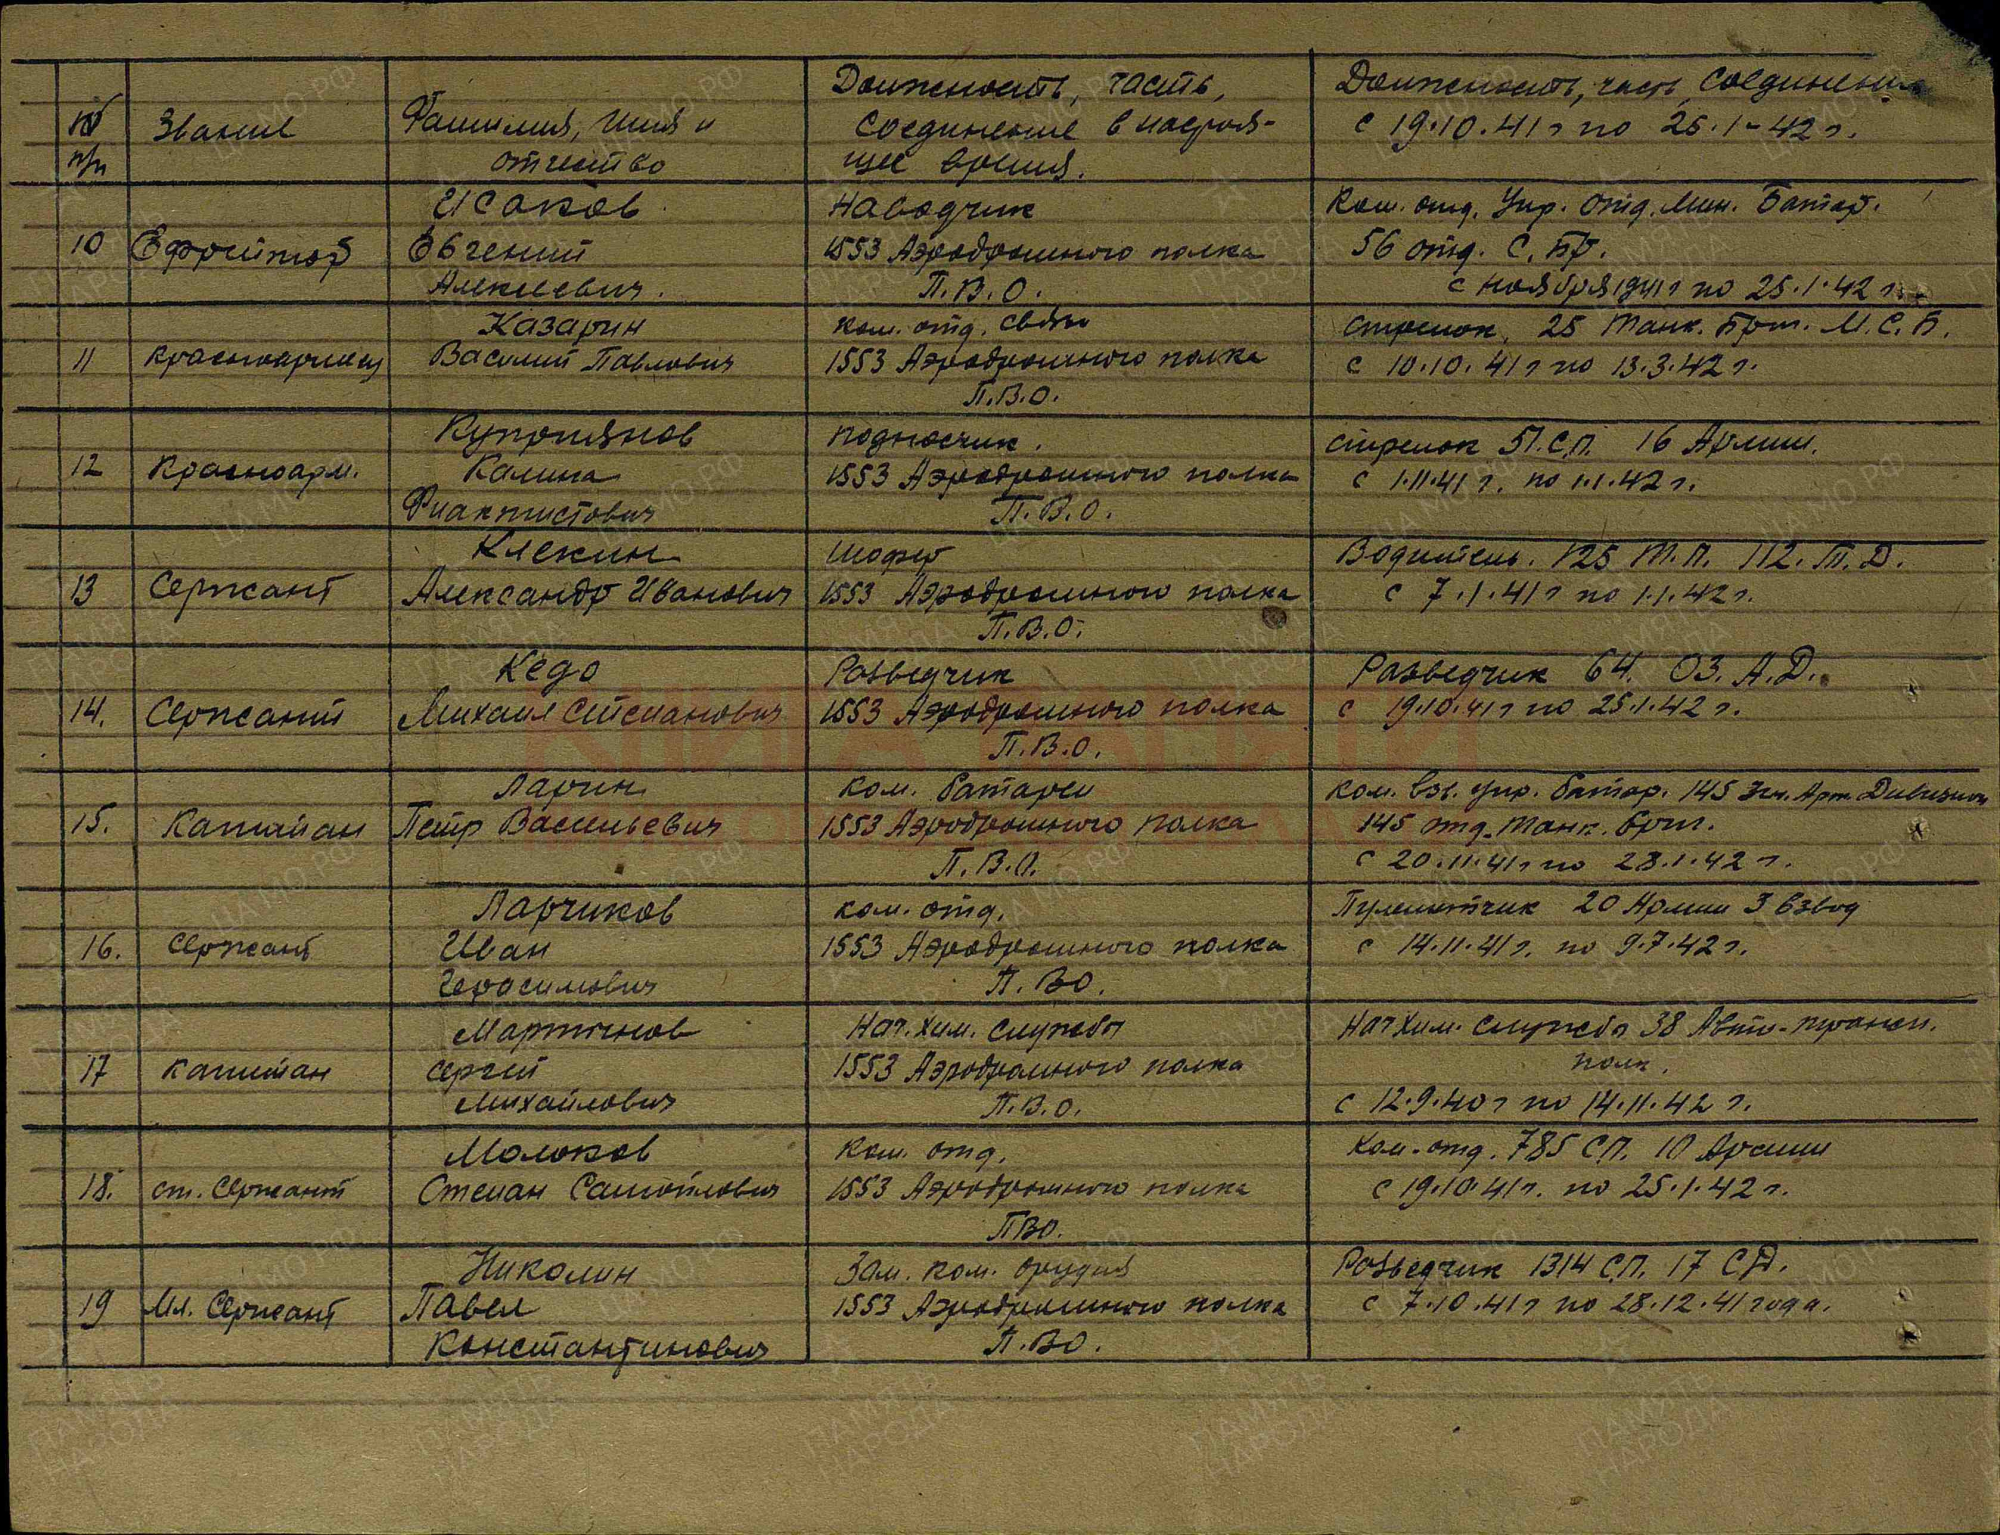 № п/п
Звание
Фамилия, имя и
отчество
Должность, часть,
соединение в настоя-
щее время.
Должность, часть, соединение
с 19.10.41 г по 25.1-42 г.
10
Ефрейтор
Исаков
Евгений
Алексеевич.
Наводчик
1553 Аэродромного полка
П.В.О.
Ком. отд. Упр. отд. Мин. Батар.
56 отд. С. Бр.
с ноября 1941 г по 25.1.42 г.
11
красноармеец
Казарин
Василий Павлович
ком. отд. связи
1553 Аэродромного полка
П.В.О.
стрелок, 25 Танк. Бриг. М.С.Б.
с 10.10.41 г по 13.3.42 г.
12
Красноарм.
Куприянов
Калина
Фиактистович
подносчик.
1553 Аэродромного полка
П.В.О.
стрелок 51. С.П. 16 Армии.
с 1.11.41 г. по 1.1.42 г.
13
Сержант
Клекин
Александр Иванович
шофер
1553 Аэродромного полка
П.В.О.
Водитель. 125 Т.П. 112. Т.Д.
с 7.1.41 г по 1.1.42 г.
14.
Сержант
Кедо
Михаил Степанович
Разведчик
1553 Аэродромного полка
П.В.О.
Разведчик 64. ОЗ. А.Д.
с 19.10.41 г по 25.1.42 г.
15.
Капитан
Ларин
Петр Васильевич
ком. батареи
1553 Аэродромного полка
П.В.О.
ком. взв. упр. батар. 145 Зен. Арт. Дивизион
145 отд. Танк. бриг.
с 20.11.41 г по 28.1.42 г.
16.
Сержант
Ларчиков
Иван
Герасимович
ком. отд.
1553 Аэродромного полка
П.ВО.
Пулеметчик 20 Армии 3 взвод
с 14.11.41 г. по 9.7.42 г.
17
капитан
Мартынов
Сергей
Михайлович
Нач. хим. службы
1553 Аэродромного полка
П.В.О.
Нач хим. службы 38 Авто-трансп.
полк.
с 12.9.40 г по 14.11.42 г.
18.
ст. Сержант
Молоков
Степан Самойлович
Ком. отд.
1553 Аэродромного полка
ПВО.
Ком. отд. 785 СП. 10 Армии
с 19.10.41 г. по 25.1.42 г.
19
Мл. Сержант
Николин
Павел
Константинович
Зам. ком. орудия
1553 Аэродромного полка
П.ВО.
Разведчик 1314 СП. 17 СД.
с 7.10.41 г по 28.12.41 года.